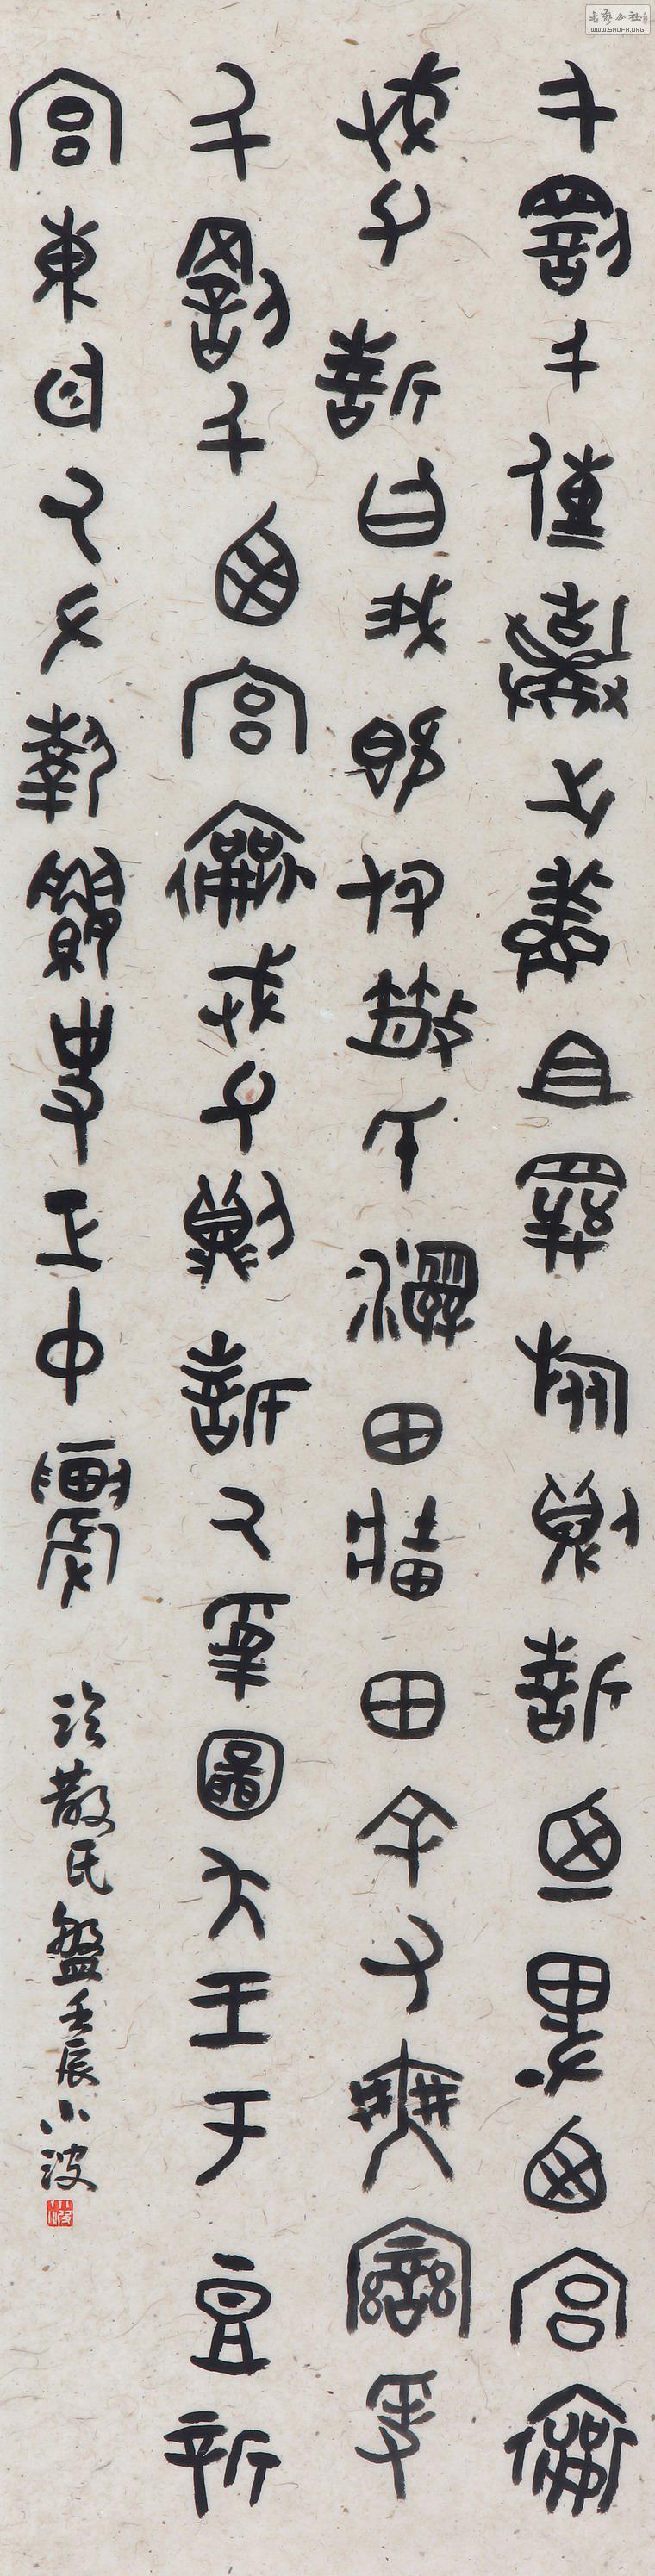 千罰千傳棄之鮮且旅則誓廼卑西宮襄
武父誓曰我既付散氏溼田牆田余又爽變爰
千罰千西宮襄武父則誓氒圖夨王于豆新
宮東廷氒左執縷史正中農
臨散氏盤壬辰小波
书艺公社
WWW.SHUFA.ORG